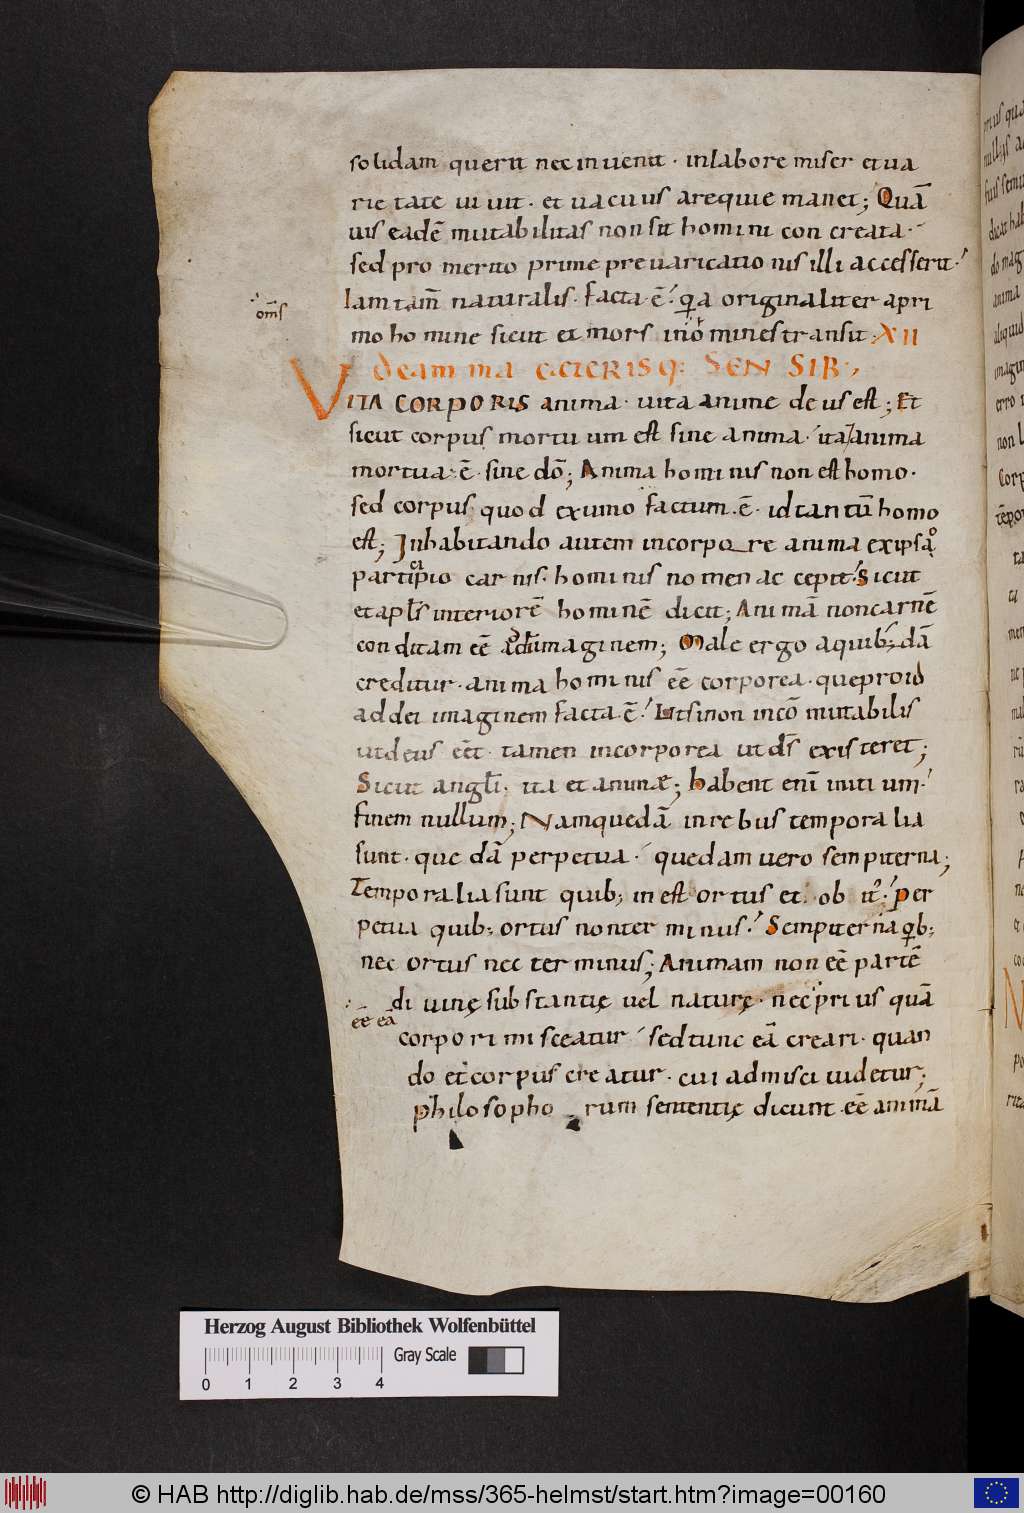 solidam querit nec inuenit · inlabore miser et ua
rie tate uiuit · et uacuus arequie manet; Quā
uis eadē mutabilitas non sit homini con creata ·
sed pro merito prime preuaricationis illi accesserit ·
Iam tam̄ naturalis · facta ē · qͥa originaliter apri
om̄s
mo homine sicut et mors inōmines transit · XII
De anima ceterisq: SENSIB;
VITA CORPORIS anima · uita anime deus est; Et
sicut corpus mortuum est sine anima · ita anima
mortua · ē · sine dō; Anima hominis non est homo ·
sed corpus · quod ex umo factum · ē · id tantū homo
est; Inhabitando autem incorpore anima ex ipsa
participio carnis · hominis nomen accepit · Sicut
et apl̄s interiorē hominē dicit; Animā non carnē
conditam eē ad di imaginem; Male ergo a quib; dā
creditur · anima hominis eē corporea · que proid
ad dei imaginem facta ē · Ut si non incō mutabilis
ut deus eēt · tamen incorporea ut ds̄ existeret;
Sicut angli · ita et animæ; habent enī initium ·
finem nullum; Nam quedā in rebus temporalia
sunt · que dā perpetua · quedam uero sempiterna;
Temporalia sunt quib; in est ortus et · ob it · per
petua quib; ortus non terminus · Sempiterna qͥb;
nec ortus nec terminus; Animam non eē partē
diuinę substantię uel naturę · nec prius quā
eē eā
corpori misceatur · sed tunc eā creari · quan
do et corpus creatur · cui admisci uidetur;
philosophorum sententię dicunt · eē animā
Herzog August Bibliothek Wolfenbüttel
Gray Scale
0 1 2 3 4
© HAB http://diglib.hab.de/mss/365-helmst/start.htm?image=00160